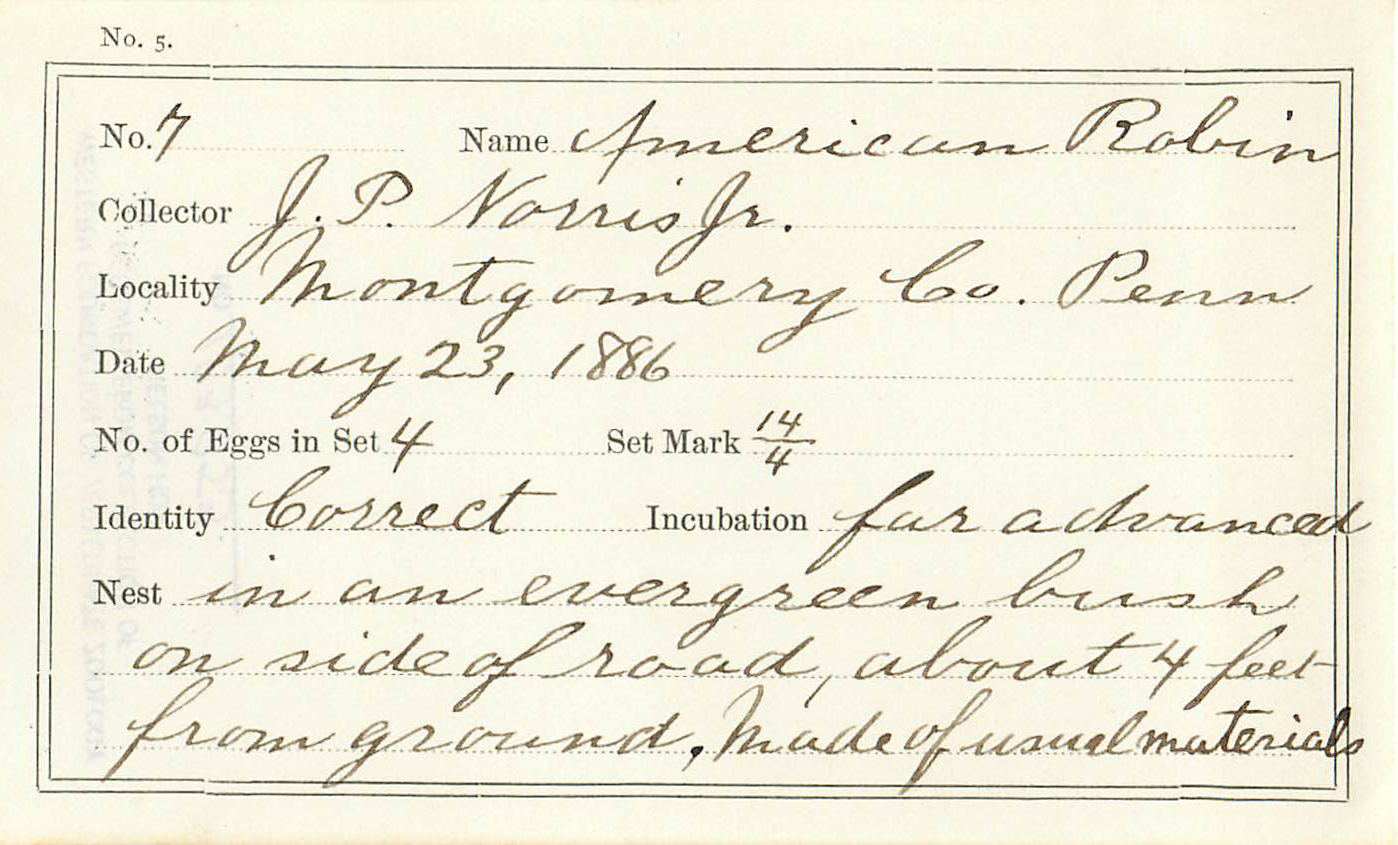 No. 5.
No. 7 Name American Robin
Collector J. P. Norris Jr.
Locality Montgomery Co. Penn
Date May 23, 1886
No. of Eggs in Set 4 Set Mark 14/4
Identity Correct Incubation far advanced
Nest in an evergreen bush
on side of road, about 4 feet
from ground. Made of usual materials